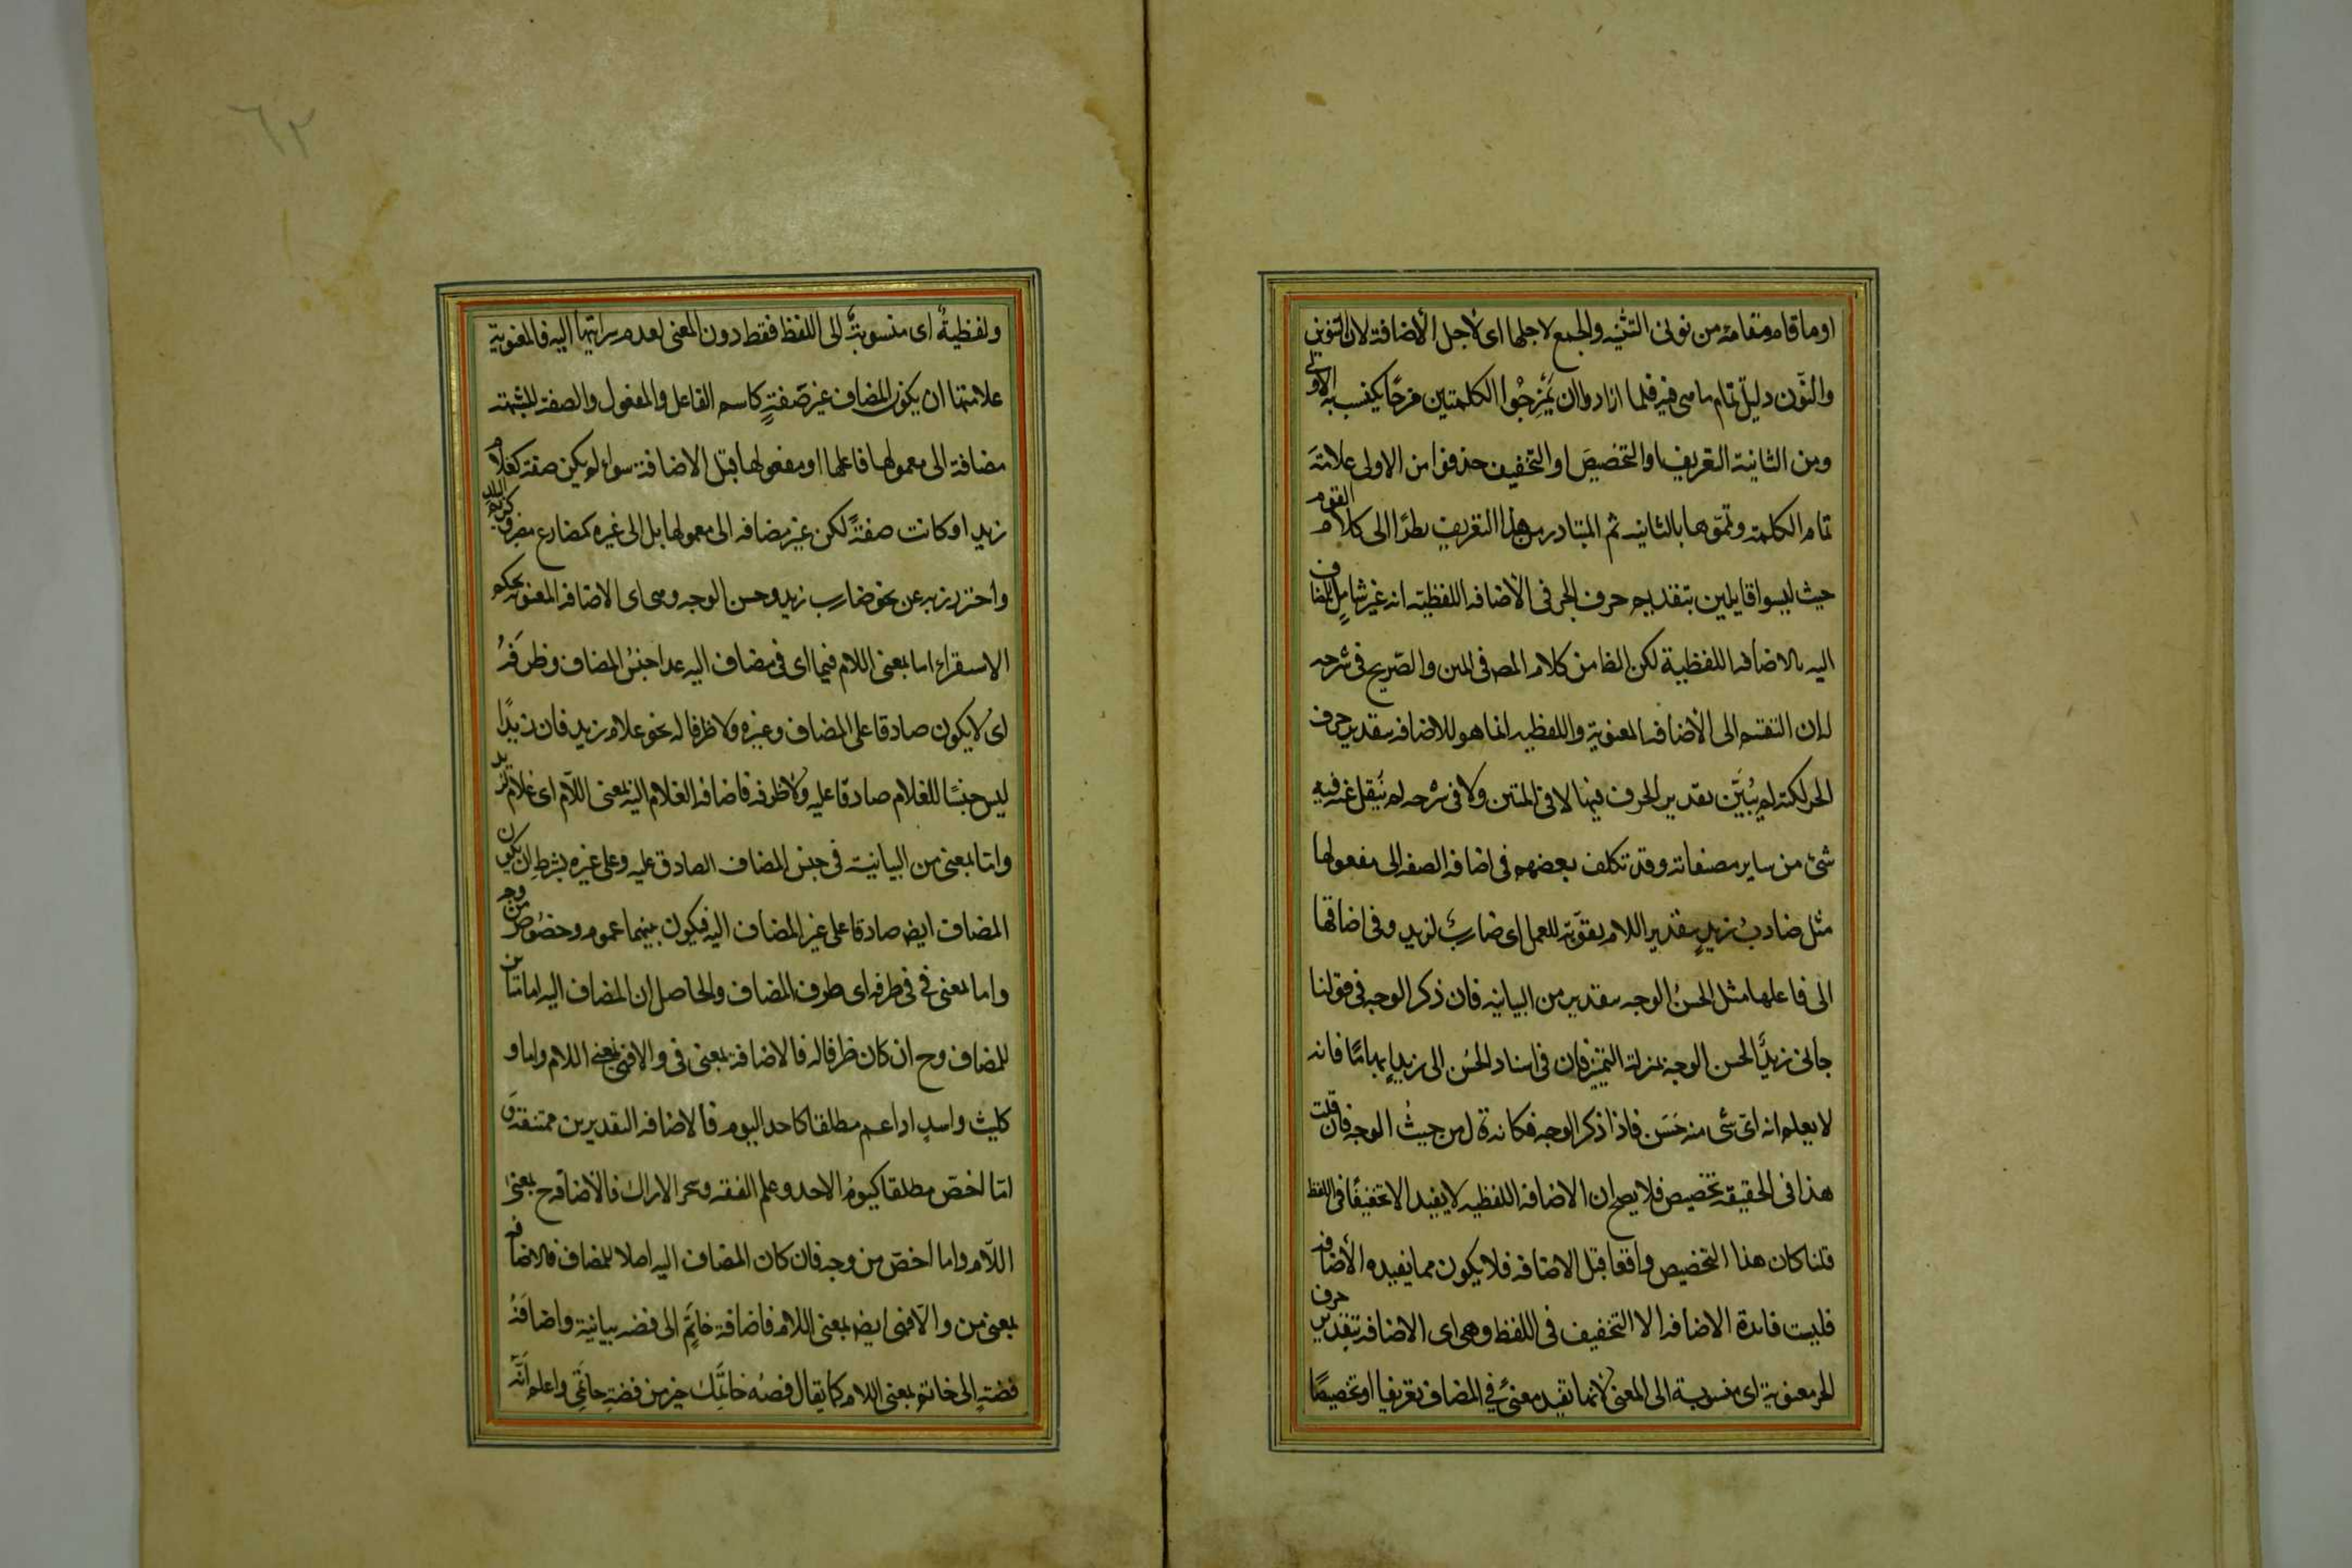 او ما قام مقامه من نونى التثنيه والجمع لاجلها اى لاجل الأضافة لان التنوين
والنّون دليل تمام ما هى فيه فلما ارادوا ان يَمْزِجُوا الكلمتين مزجًا يكتسب به الاولى
ومن الثانية التعريف او التخصيصَ او التخفيف حذفوا من الاولى علامَةَ
تمام الكلمة وتمّموها بالثانيه ثم المتبادر من هذا التعريف نظرًا الى كلام القوم
حيث ليسوا قايلين بتقدير حرف الجر فى الأضافه اللفظيّه انه غير شاملٍ للمضاف
اليه بالاضافه اللفظية لكن الظا من كلام المص فى المتن والصّريح فى شرحه
ان التقسيم الى الأضافه المعنوية واللفظيه انما هو للاضافه بتقدير حرف
الجر لكنه لم يُبَيّن تقدير الحرف فيها لا فى المتن ولا فى شرحه لم يُنقل عنه فيه
شئ من ساير مصنفاته وقد تكلف بعضهم فى اضافه الصفه الى مفعولها
مثل ضاربُ زيدٍ بتقدير اللام تقويَةً للعمل اى ضاربٌ لزيد وفى اضافتها
الى فاعلها مثل الحسنُ الوجه بتقدير من البيانيه فان ذكر الوجه فى قولنا
جانى زيدٌ الحسن الوجه بمنزلة التمييز فان فى اسناد الحُسن الى زيد ابهامًا فانه
لا يعلم انه اىّ شى منه حَسَن فاذا ذكر الوجه فكانه قال من حيثُ الوجه فان قلت
هذا فى الحقيقه تخصيص فلا يصح ان الاضافه اللفظيه لا يفيد الا تخفيفًا فى اللفظ
قلنا كان هذا التخصيص واقعا قبل الاضافه فلا يكون مما يفيده الأضافه
فليست فائدة الاضافه الا التخفيف فى اللفظ وهى اى الاضافه بتقدير حرف
الجر معنوية اى منسوبة الى المعنى لأنها تفيد معنىً فى المضاف تعريفا او تخصيصًا
٦٢
ولفظيةٌ اى منسوبةٌ الى اللفظ فقط دون المعنى لعدم سرايتها اليه فالمعنوية
علامتها ان يكون المضاف غير صفةٍ كاسم الفاعل والمفعول والصفة المشبهة
مضافة الى معمولها فاعلها او مفعولها قبل الاضافة سواء لم يكن صفة كغلام
زيد او كانت صفةً لكن غير مضافه الى معمولها بل الى غيره كمضارع مصر وكريم البلد
واحترز به عن نحو ضارب زيد وحسن الوجه وهى اى الاضافه المعنويه بحكم
الاستقراء اما بمعنى اللام فيما اى فى مضاف اليه عدا جنسُ المضاف وظرفَهُ
اى لا يكون صادقا على المضاف وغيره ولا ظرفا له نحو غلام زيد فان زيدًا
ليس جنسًا للغلام صادقا عليه ولا ظرفه فاضافه الغلام اليه بمعنى اللّام اى غلام لزيد
وامّا بمعنى من البيانية فى جنس المضاف الصادق عليه وعلى غيره بشرط ان يكون
المضاف ايض صادقا على غير المضاف اليه فيكون بينهما عموم وخصُوص من وجه
واما بمعنى فى فى ظرفه اى ظرف المضاف والحاصل ان المضاف اليه اما مباين
للمضاف وح ان كان ظرفا له فالاضافة بمعنى فى والا فهى بمعنى اللام واما مساو
كليث واسد او اعم مطلقا كاحد اليوم فالاضافه التقديرين ممتنعة و
امّا اخصّ مطلقا كيومُ الاحد وعلم الفقه وشجر الاراك فالأضافه ح بمعنى
اللّام واما اخصّ من وجه فان كان المضاف اليه اصلا للمضاف فالاضافه
بمعنى من والّا فهى ايض بمعنى اللام فاضافة خاتَمٍ الى فضه بيانية واضافَةُ
فضةٍ الى خاتم بمعنى اللام كما يقال فضه خاتمك خير من فضة خاتمى واعلم انّه